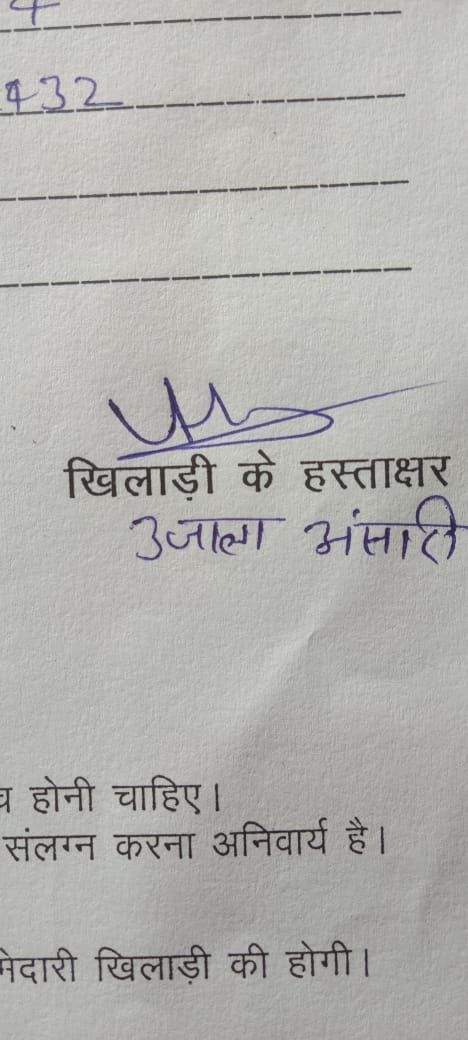 4
432
खिलाड़ी के हस्ताक्षर
उजाला अंसारी
होनी चाहिए।
संलग्न करना अनिवार्य है।
खिलाड़ी की होगी।